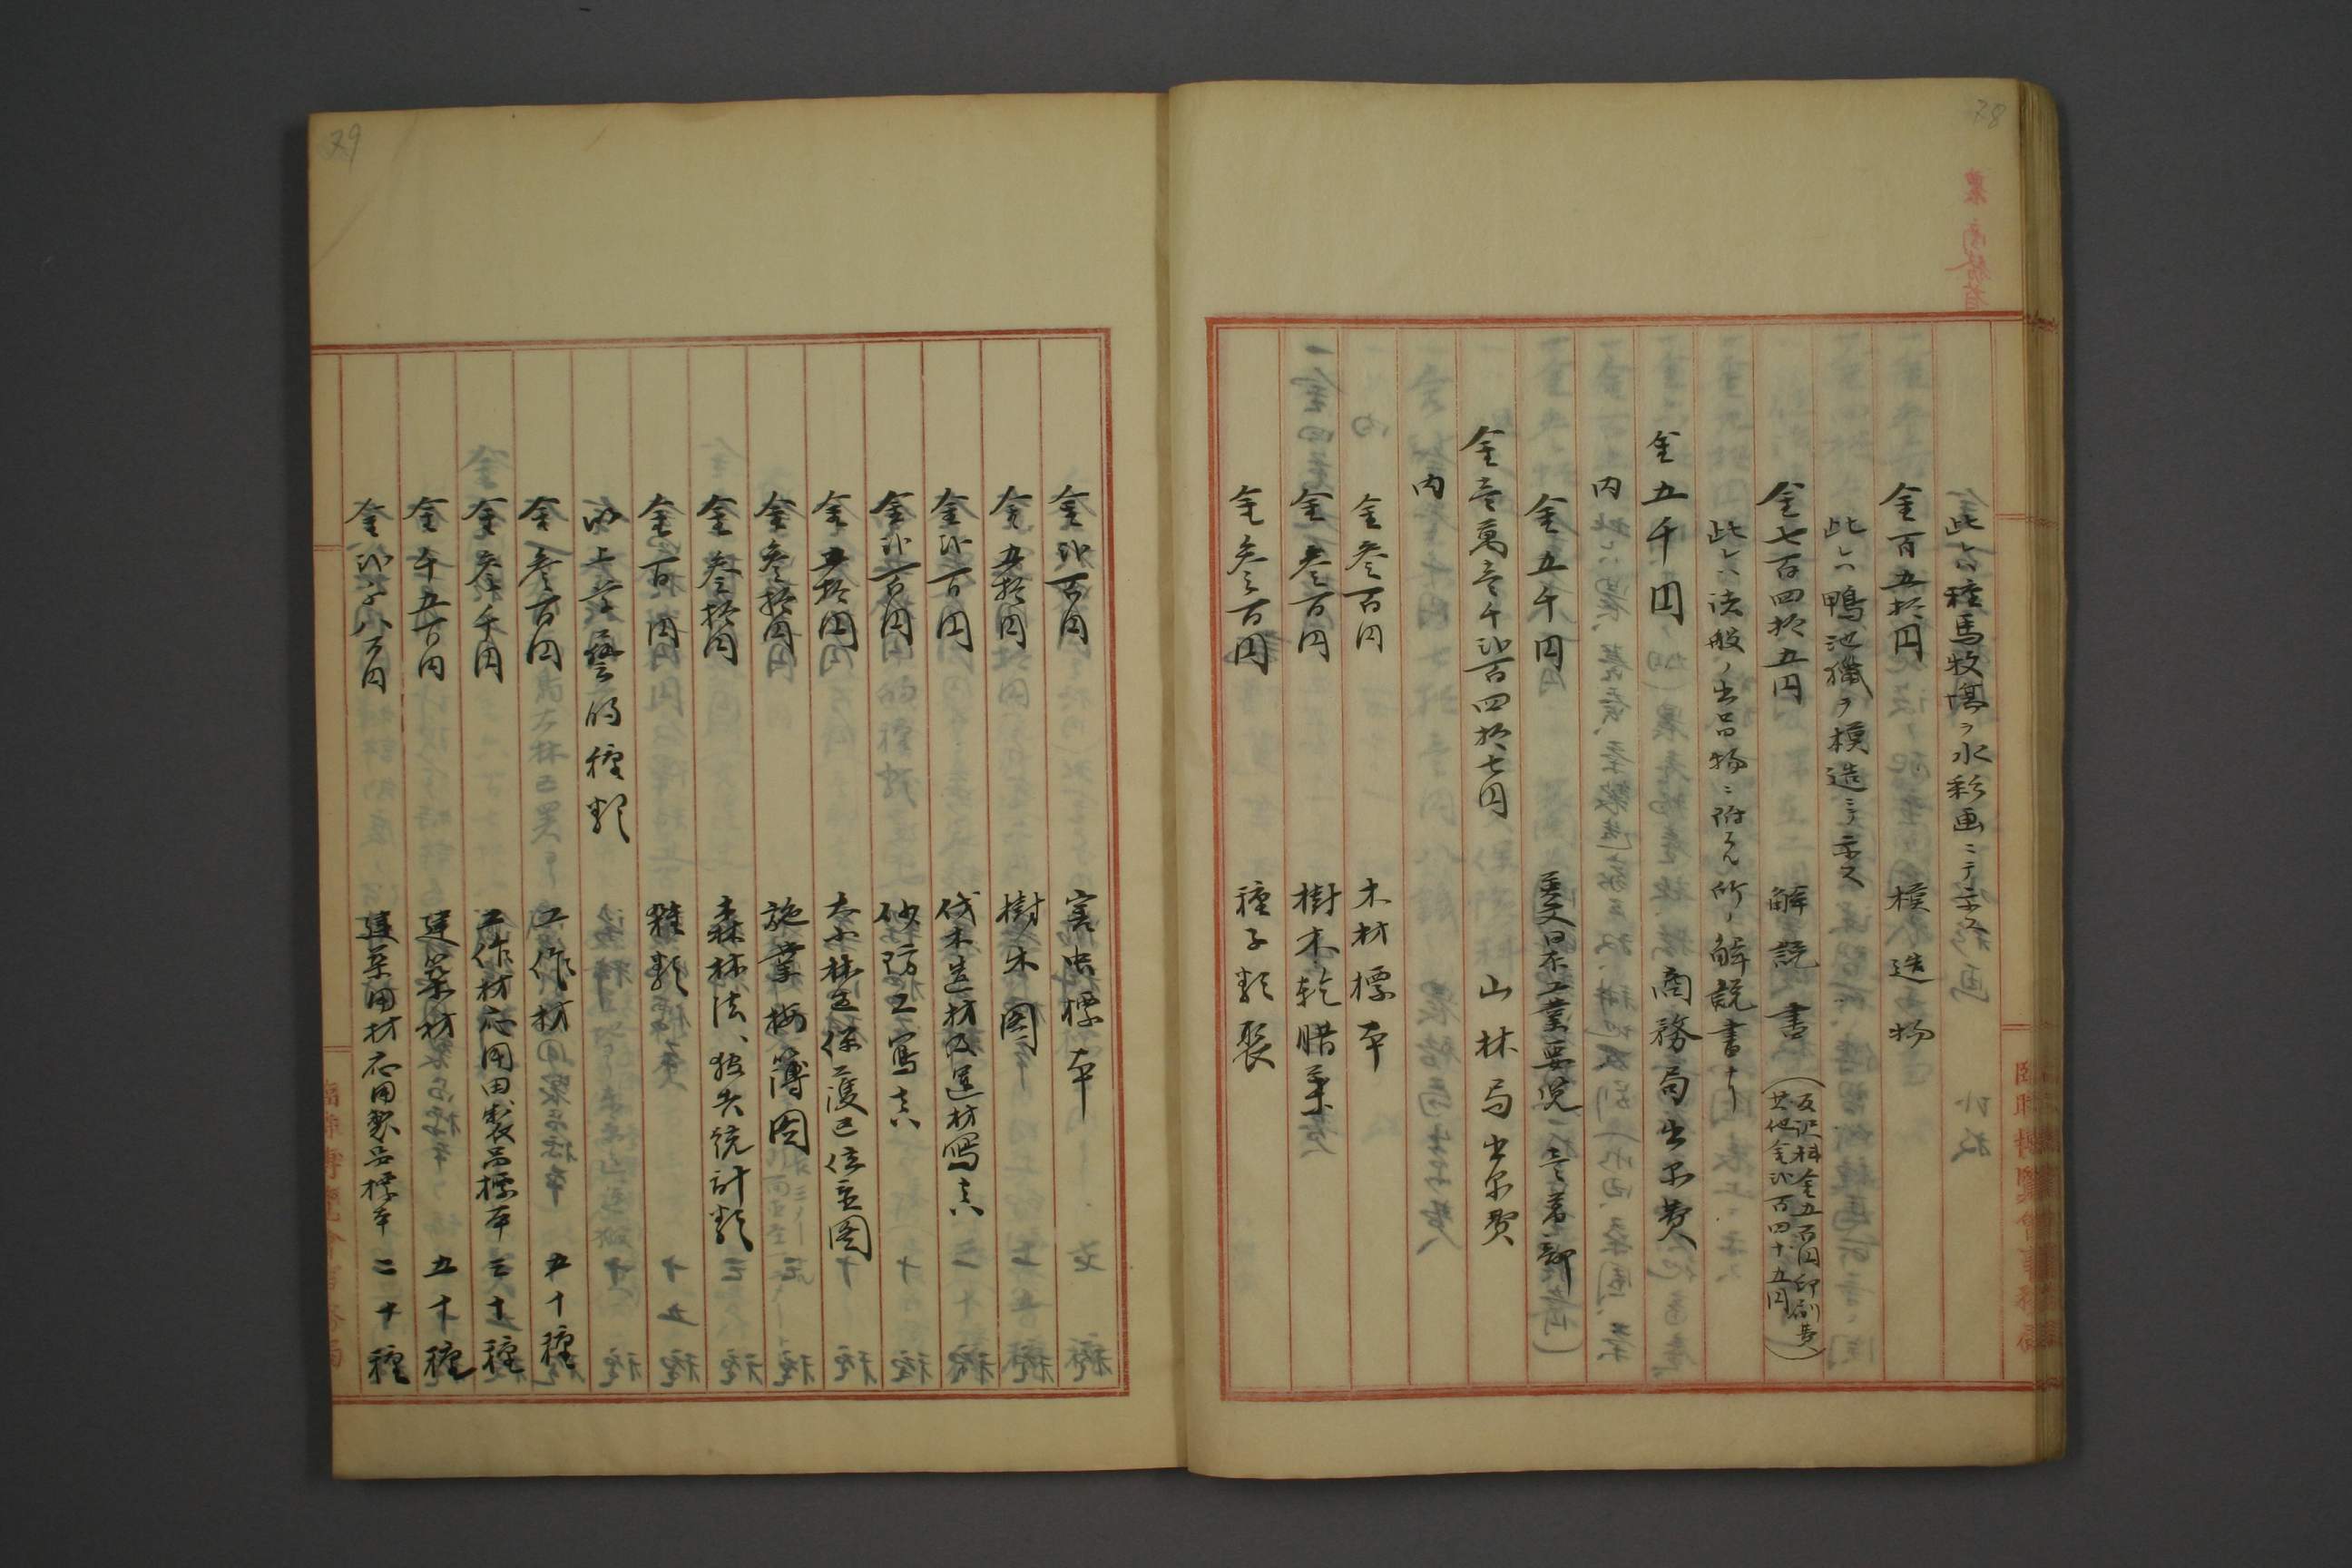 78
此ハ種馬牧場ヲ水彩画ニテ示ス
金百五拾円 模造物
此ハ鴨池猟ヲ模造ニテ示ス
金七百四拾五円 解説書 (反訳料金五百円印刷費其他金弐百四十五円)
此ハ諸般ノ出品物ニ附スル所ノ解説書ナリ
金五千円 商務局出品費
内
金五千円 英文日本工業要況 壱著部
金壱萬壱千弐百四拾七円 山林局出品費
内
金参百円 木材標本
金参百円 樹木乾腊葉
金参百円 種子類聚
79
金弐百円 害虫標本
金五拾円 樹木図
金弐百円 伐木造材及運材写真
金弐百円 砂防工写真
金五拾円 大小林区保護区位置図
金参拾円 施業按簿図
金参拾円 森林法、狼矢統計類
金百円 雑類 十五種
以上学藝的種類
金参百円 工作材 五十種
金参千円 工作材応用製品標本 三十種
金千五百円 建築材 五十種
金弐千八百円 建築用材応用製品標本 二十種